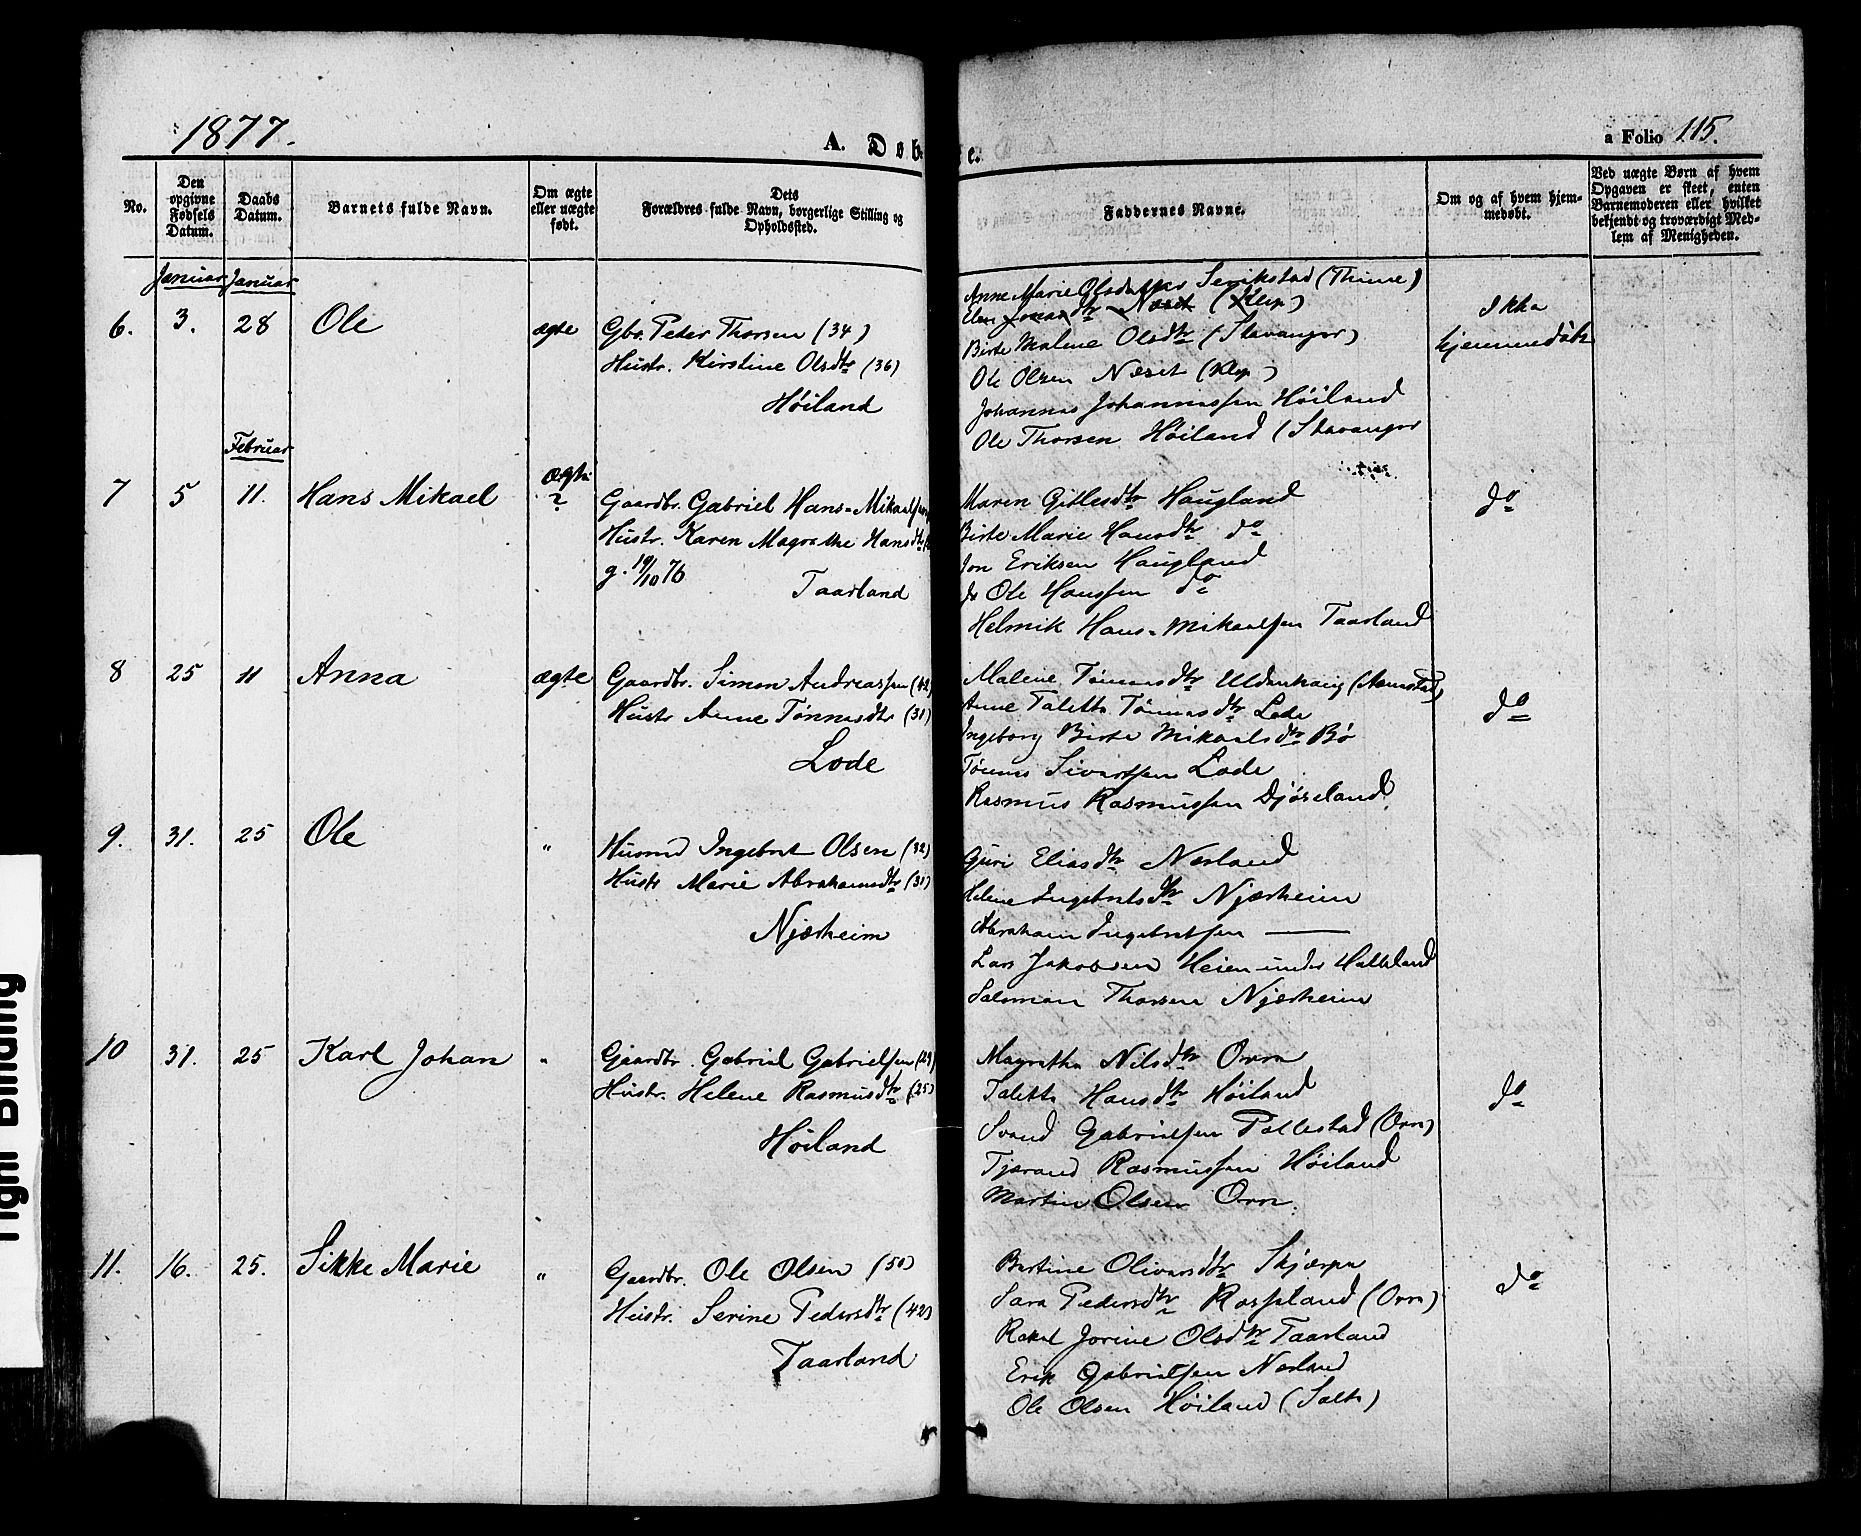 1877.
A. Døbte.
a Folio 115.
No.
Den opgivne Fødsels Datum.
Daabs Datum.
Barnets fulde Navn.
Om ægte eller uægte født.
Dets Forældres fulde Navn, borgerlige Stilling og Opholdssted.
Faddernes Navne.
Om og af hvem hjemmedøbt.
Ved uægte Børn af hvem Opgaven er skeet, enten Barnemoderen eller hvilket bekjendt og troværdigt Medlem af Menigheden.
Januar Januar
6. 3. 28 Ole ægte
Gbr. Peder Thorsen (34)
Hustr. Kirstine Olsdtr (36)
Høiland
Anne Marie Olsdatter Serikstad (Thime)
Elen Jonasdtr Næset (Klep)
Birte Malene Olsdtr (Stavanger)
Ole Olsen Næset (Klep)
Johannes Johannessen Høiland
Ole Thorsen Høiland (Stavanger
Ikke
hjemmedøbt
Februar
7 5 11. Hans Mikael ægte
?
Gaardbr. Gabriel Hans-Mikaelsen
Hustr. Karen Magrethe Hansdtr
g. 19/10 76
Taarland
Maren Gitlesdtr Haugland
Birte Marie Hansdtr do
Jon Eriksen Haugland
Ole Hanssen do
Helmik Hans-Mikaelsen Taarland
do
8 25 11 Anna ægte
Gaardbr. Simon Andreassen (42)
Hustr Anne Tønnesdtr (31)
Lode
Malene Tønnesdtr Uldenhaug (Næmstad)
Anne Taletta Tønnesdtr Lode
Ingeborg Birte Mikaelsdtr Bø
Tønnes Sivertsen Lode
Rasmus Rasmussen Djøseland.
do
9. 31. 25 Ole "
Husmd Ingebret Olsen (32)
Hustr Marie Abrahamsdtr (31)
Njærheim
Guri Eliasdtr Nærland
Helene Ingebretsdtr Njærheim
Abraham Ingebretsen ———
Lars Jakobsen Heien under Hatteland
Salomon Thorsen Njærheim
10 31. 25 Karl Johan "
Gaardbr. Gabriel Gabrielsen (29)
Hustr. Helene Rasmusdtr (25)
Høiland
Magretha Nilsdtr Orre
Taletta Hansdtr Høiland
Svend Gabrielsen Pollestad (Orre)
Tjærand Rasmussen Høiland
Martin Olsen Orre.
do
11. 16. 25. Sikke Marie "
Gaardbr. Ole Olsen (50)
Hustr. Serine Pedersdtr (42)
Taarland
Bertine Oliversdtr Skjærpe
Sara Pedersdtr Rosseland (Orre)
Rakel Jorine Olsdtr Taarland
Erik Gabrielsen Nærland
Ole Olsen Høiland (Salte)
do
Tight Binding